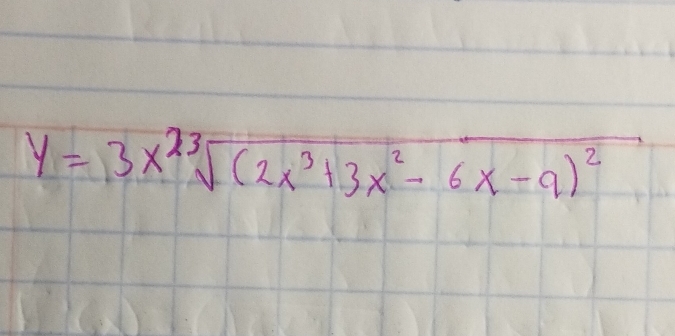 Y = 3x² ³√(2x³+3x² - 6x - 9)²